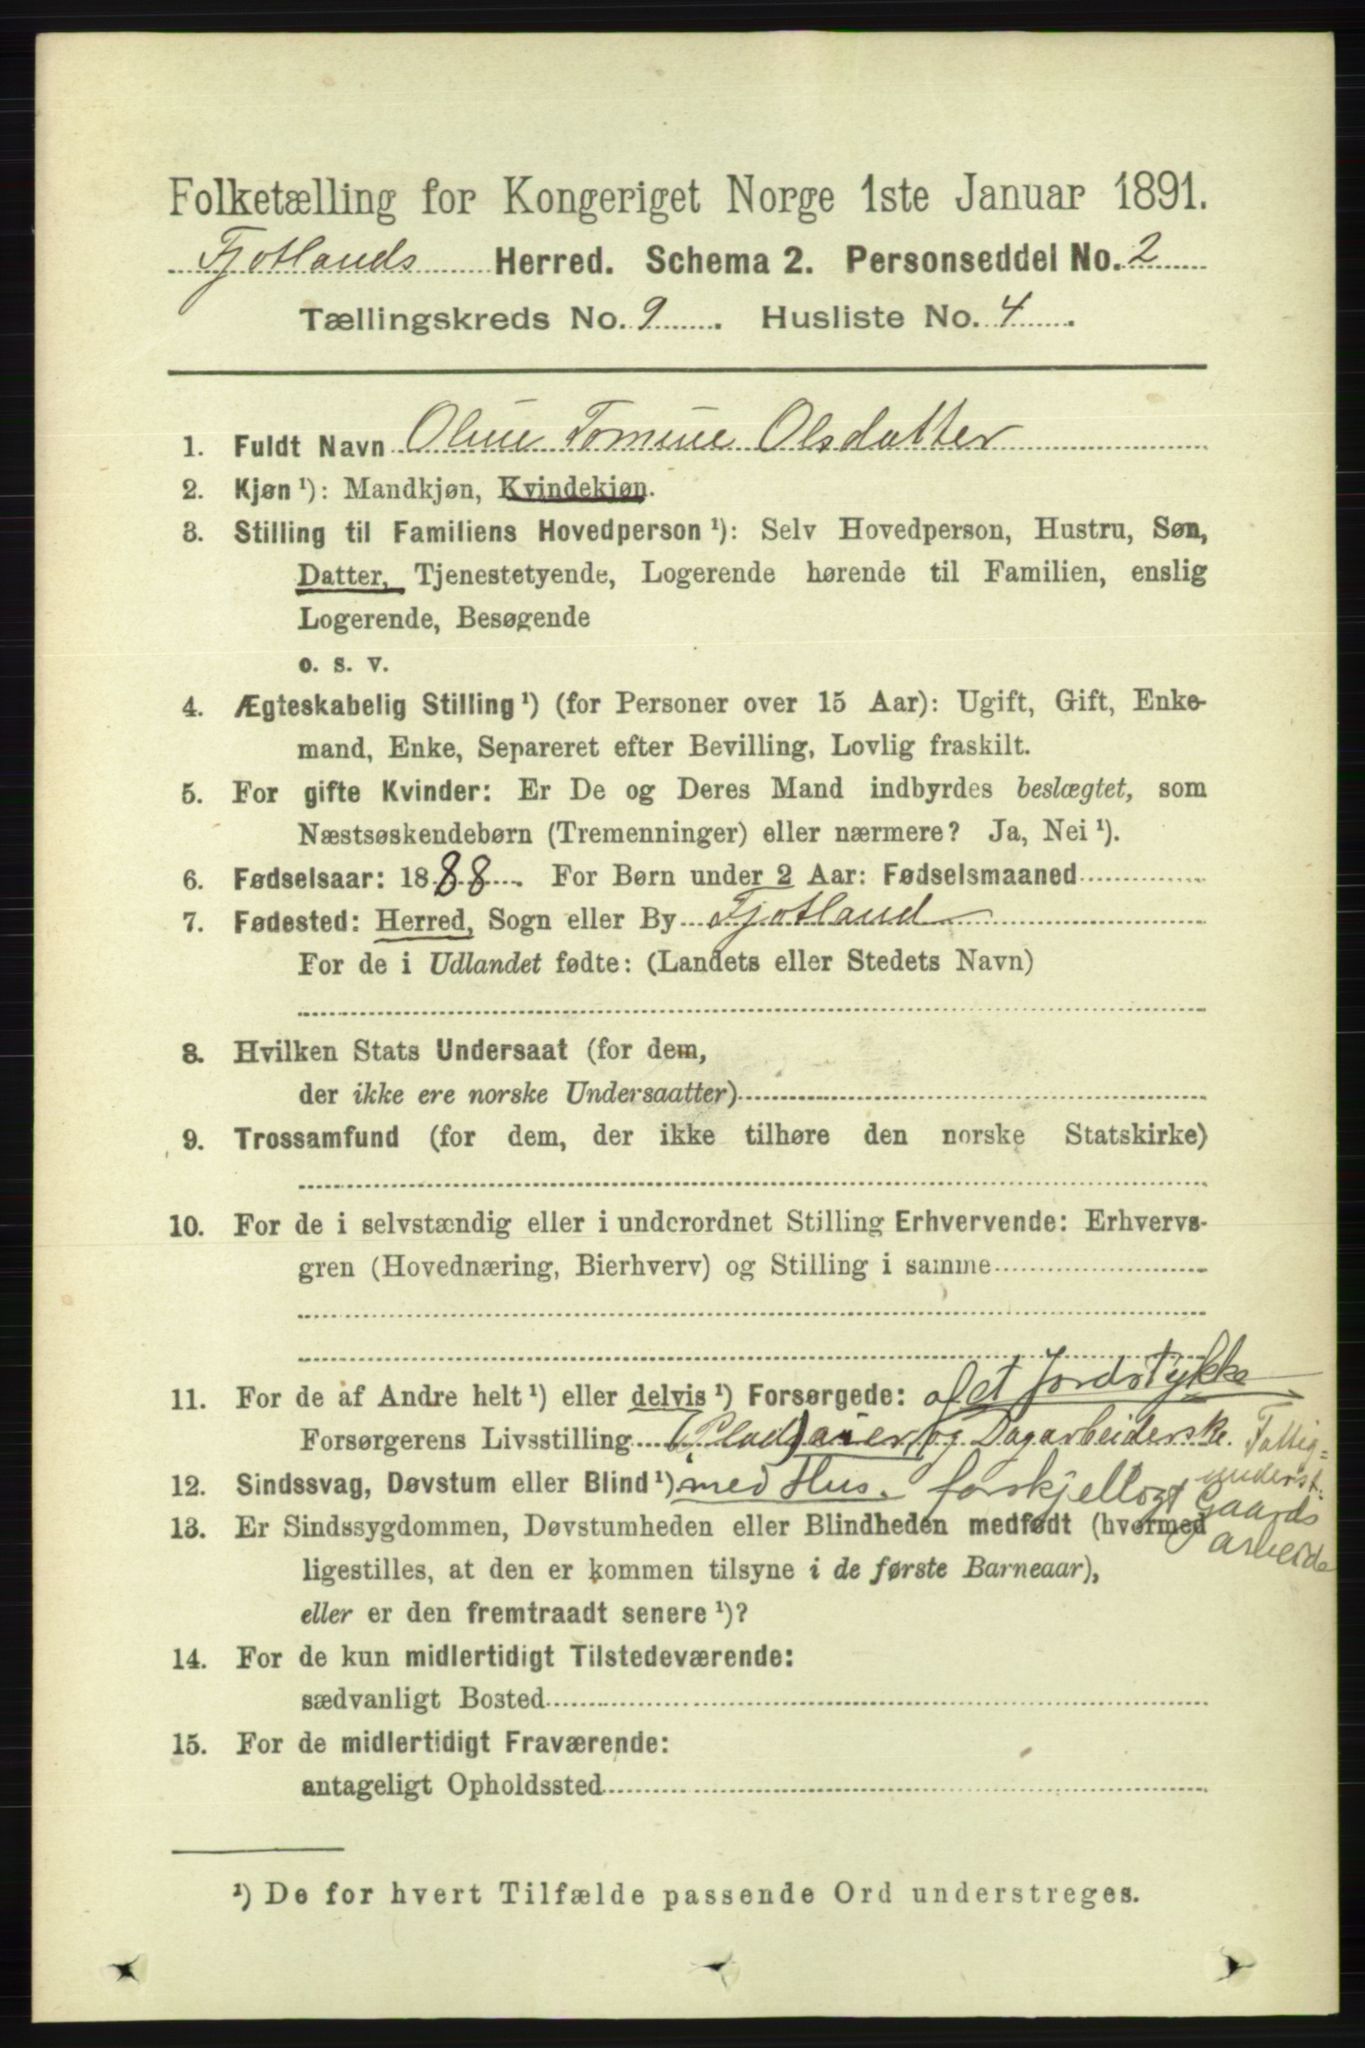 Folketælling for Kongeriget Norge 1ste Januar 1891.
Fjotlands Herred. Schema 2. Personseddel No. 2
Tællingskreds No. 9. Husliste No. 4.
1. Fuldt Navn Oline Tomine Olsdatter
2. Kjøn ¹): Mandkjøn, Kvindekjøn.
3. Stilling til Familiens Hovedperson ¹): Selv Hovedperson, Hustru, Søn,
Datter, Tjenestetyende, Logerende hørende til Familien, enslig
Logerende, Besøgende
o. s. v.
4. Ægteskabelig Stilling ¹) (for Personer over 15 Aar): Ugift, Gift, Enke-
mand, Enke, Separeret efter Bevilling, Lovlig fraskilt.
5. For gifte Kvinder: Er De og Deres Mand indbyrdes beslægtet, som
Næstsøskendebørn (Tremenninger) eller nærmere? Ja, Nei ¹).
6. Fødselsaar: 1888. For Børn under 2 Aar: Fødselsmaaned
7. Fødested: Herred, Sogn eller By Fjotland
For de i Udlandet fødte: (Landets eller Stedets Navn)
8. Hvilken Stats Undersaat (for dem,
der ikke ere norske Undersaatter)
9. Trossamfund (for dem, der ikke tilhøre den norske Statskirke)
10. For de i selvstændig eller i underordnet Stilling Erhvervende: Erhvervs-
gren (Hovednæring, Bierhverv) og Stilling i samme
11. For de af Andre helt ¹) eller delvis ¹) Forsørgede: af et Jordstykke
Forsørgerens Livsstilling (Plads) eier og Dagarbeiderske. Fattig-
underst.
12. Sindssvag, Døvstum eller Blind ¹) med Hus. forskjelligt Gaards
arbeide
13. Er Sindssygdommen, Døvstumheden eller Blindheden medfødt (hvormed
ligestilles, at den er kommen tilsyne i de første Barneaar),
eller er den fremtraadt senere ¹)?
14. For de kun midlertidigt Tilstedeværende:
sædvanligt Bosted
15. For de midlertidigt Fraværende:
antageligt Opholdssted
¹) De for hvert Tilfælde passende Ord understreges.